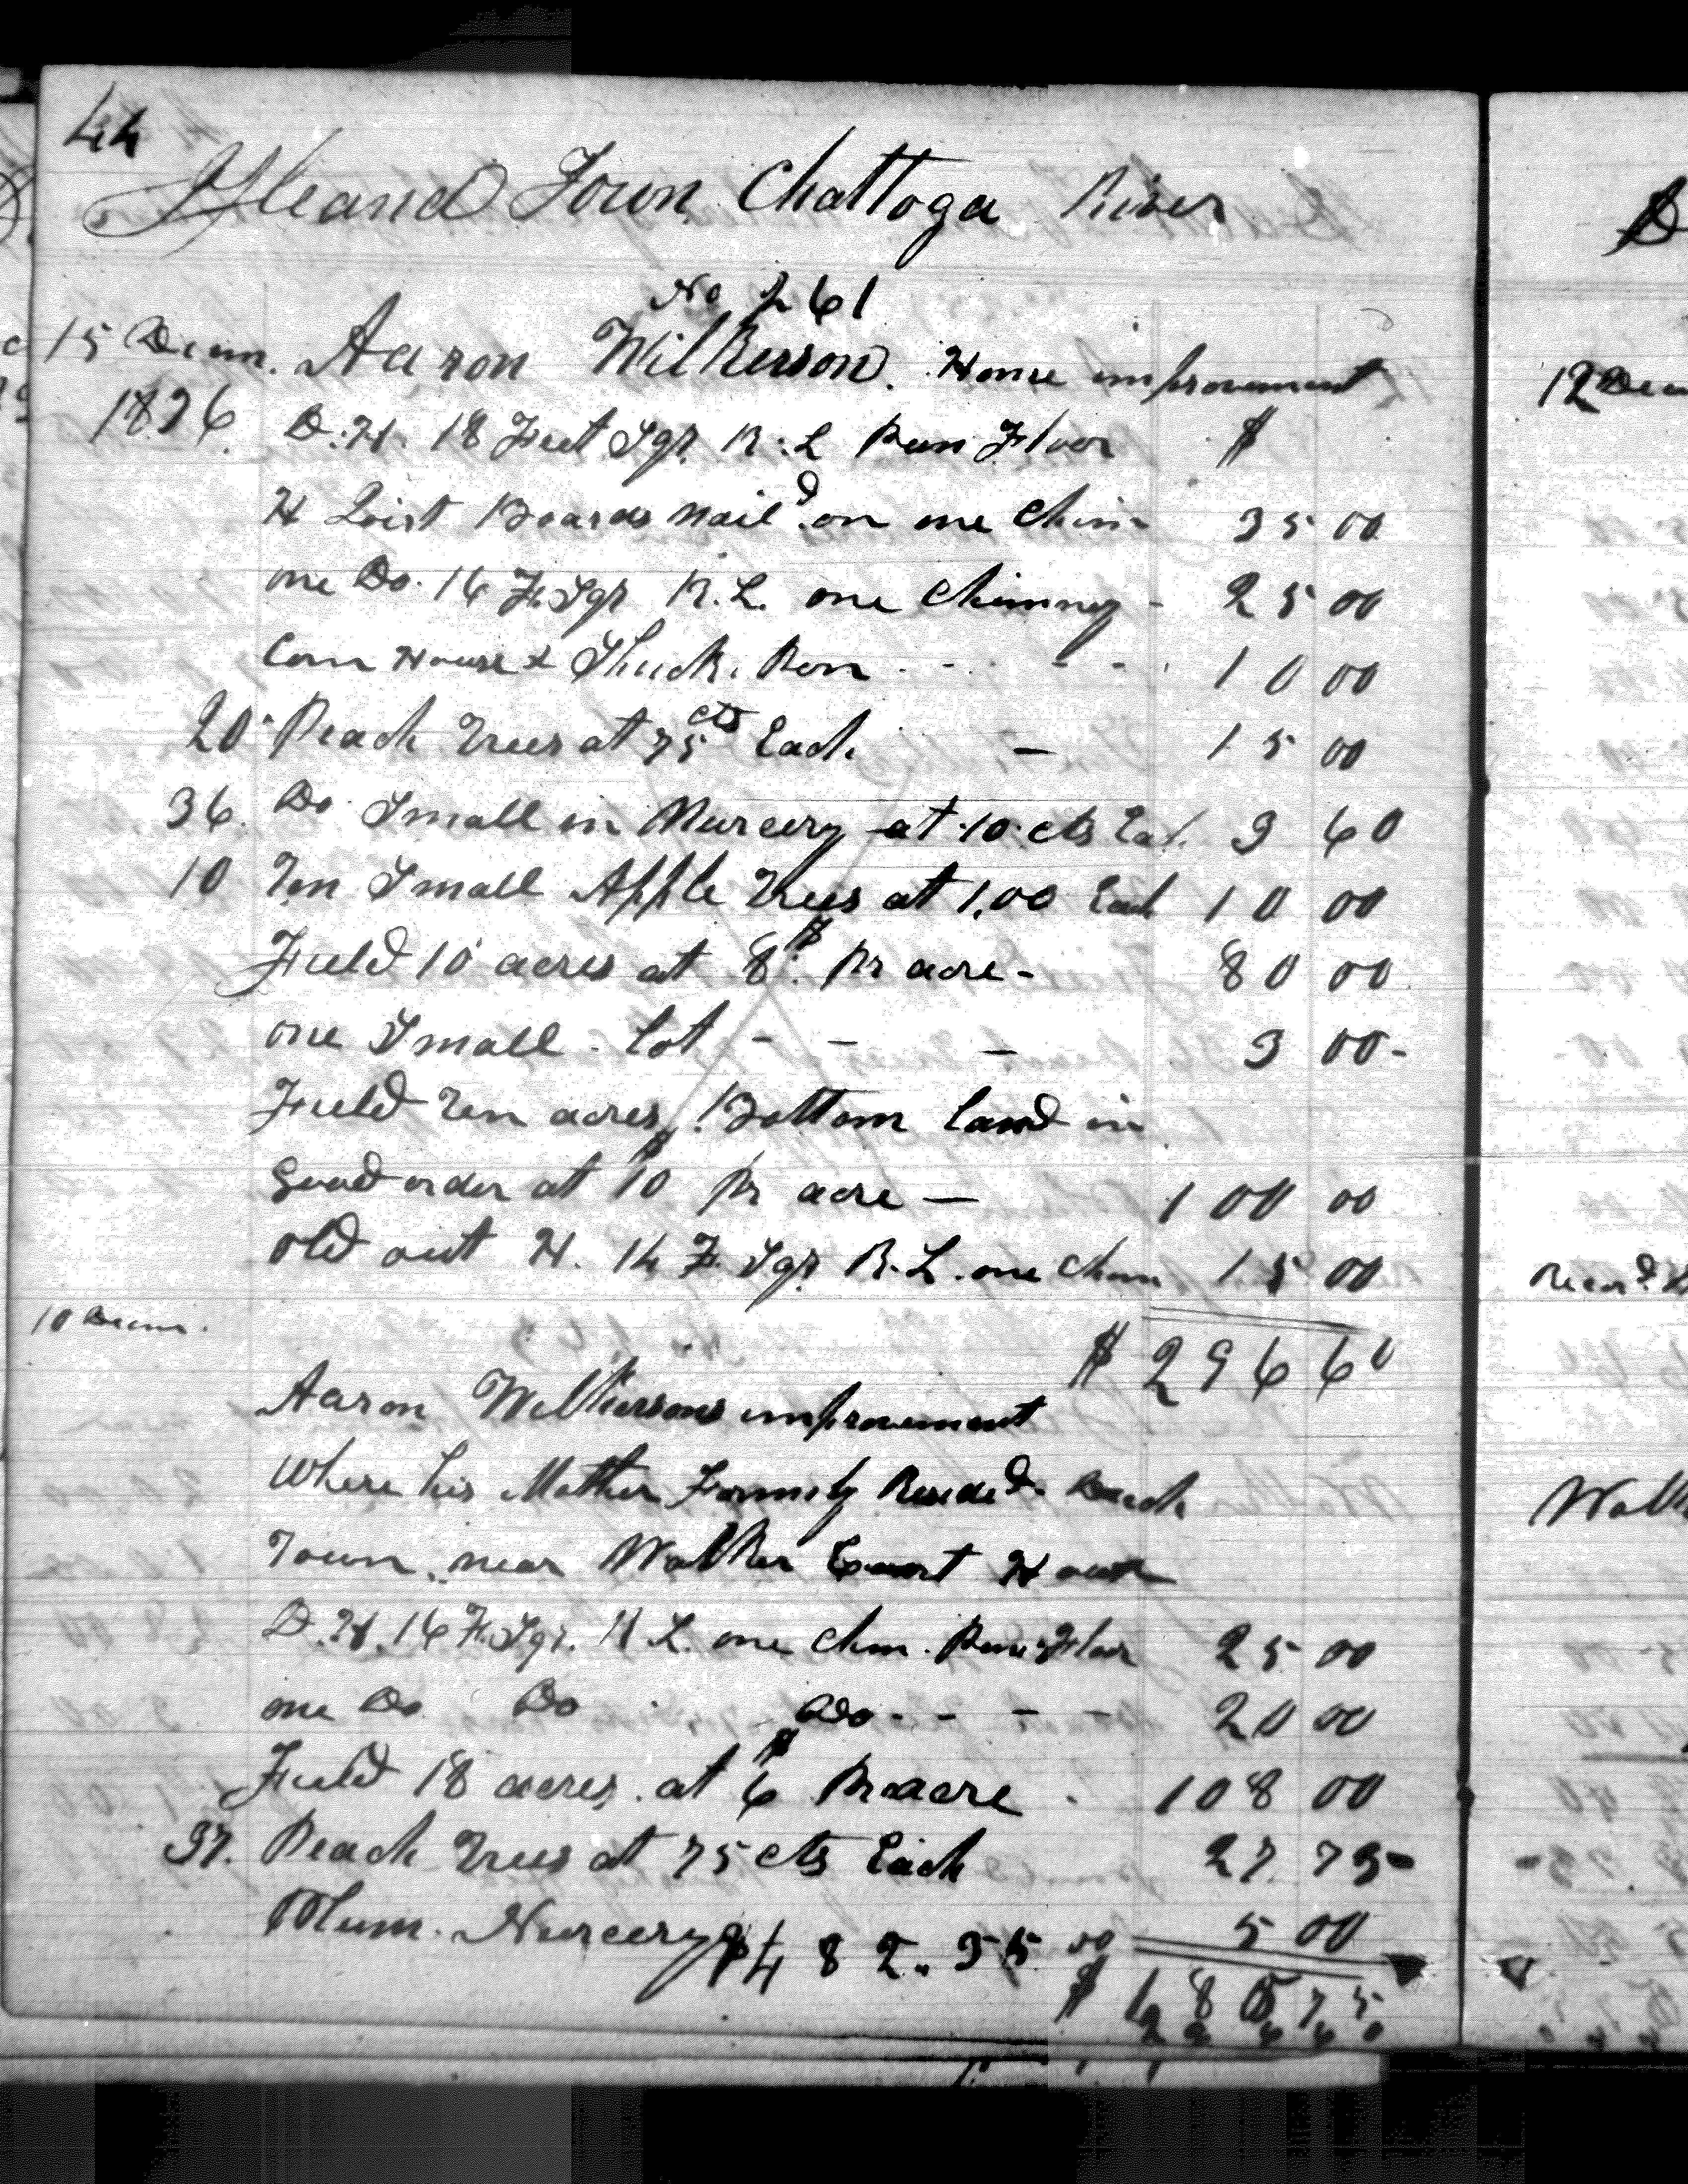 44
Island Town Chattoga River
No 261
15 Decem. Aaron Wilkerson. Home improvement
1836. D.H. 18 Feet Sqr. R.L Pun Floor $
H Loist Boards nail'd on one Chim 35 00
one Do. 16 F. Sqr R.L. one Chimney - 25 00
Corn House & Shuck. Pen - - - - - 10 00
20 Peach Trees at 75 cts Each - 15 00
36. Do Small in Nurcery at 10 cts Ea. 3 60
10 Ten Small Apple Trees at 1,00 Each 10 00
Field 10 acres at 8$ pr acre - 80 00
one Small Lot - - - 3 00-
Field Ten acres Bottom Land in
Good order at $10 pr acre — 100 00
old out H. 14 F. Sqr R.L. one Chim 15 00
10 Decem.
$ 296 60
Aaron Wilkersons improvement
Where his Mother Formily Reside'd.
Town near Walker Court House
D.H. 16 F. Sqr. R L. one Chm. Pun Floor 25 00
one Do Do Do - - - - 20 00
Field 18 acres at $6 Pr acre . 108 00
37. Peach Trees at 75 cts Each 27 75-
Plum Nurcery 5 00
$482.35
$ 185 75
296 60
12 Decem
Walk